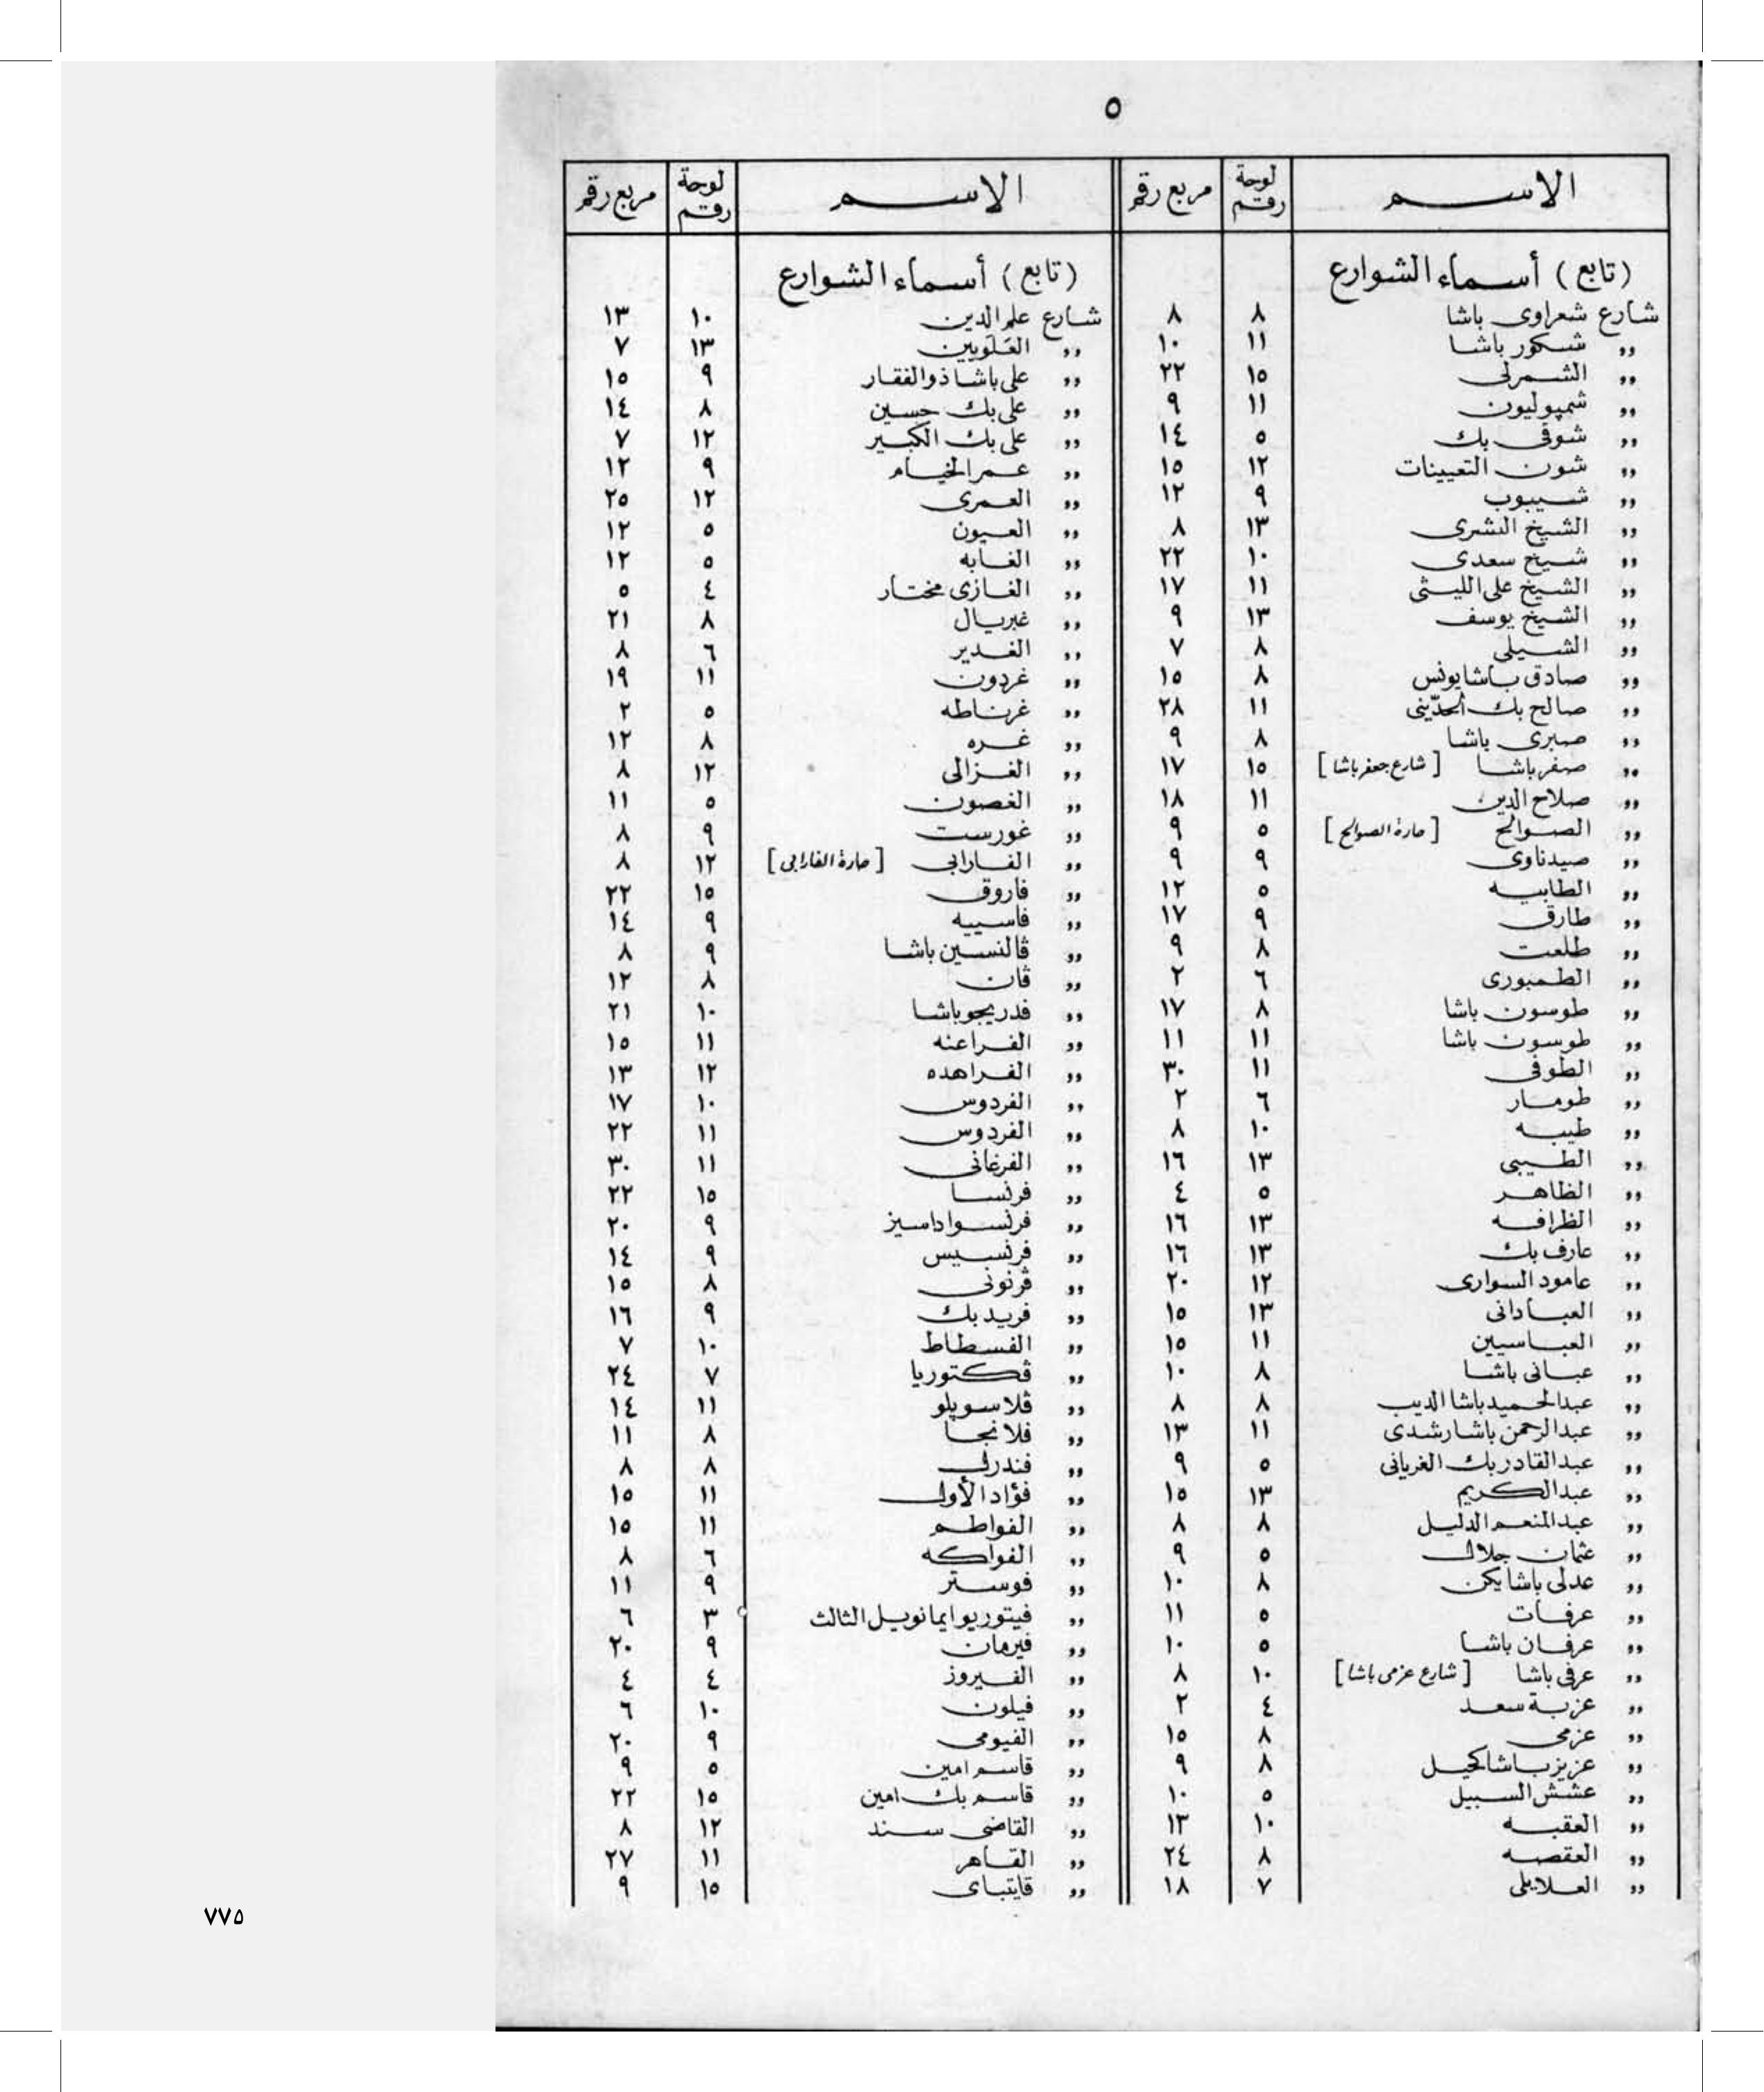 ٥
الاسم لوحة رقم مربع رقم
(تابع) أسماء الشوارع
شارع شعراوى باشا ٨ ٨
,, شكور باشا ١١ ١٠
,, الشمرلى ١٥ ٢٢
,, شمپوليون ١١ ٩
,, شوقى بك ٥ ١٤
,, شون التعيينات ١٢ ١٥
,, شيبوب ٩ ١٢
,, الشيخ البشرى ١٣ ٨
,, شيخ سعدى ١٠ ٢٢
,, الشيخ على الليثى ١١ ١٧
,, الشيخ يوسف ١٣ ٩
,, الشيلى ٨ ٧
,, صادق باشا يونس ٨ ١٥
,, صالح بك الحدّينى ١١ ٢٨
,, صبرى باشا ٨ ٩
,, صفر باشا [شارع جعفر باشا] ١٥ ١٧
,, صلاح الدين ١١ ١٨
,, الصوالح [حارة الصوالح] ٥ ٩
,, صيدناوى ٩ ٩
,, الطابيه ٥ ١٢
,, طارق ٩ ١٧
,, طلعت ٨ ٩
,, الطمبورى ٦ ٢
,, طوسون باشا ٨ ١٧
,, طوسون باشا ١١ ١١
,, الطوفى ١١ ٣٠
,, طومار ٦ ٢
,, طيبه ١٠ ٨
,, الطيبى ١٣ ١٦
,, الظاهر ٥ ٤
,, الظرافه ١٣ ١٦
,, عارف بك ١٣ ١٦
,, عامود السوارى ١٢ ٢٠
,, العبادانى ١٣ ١٥
,, العباسيين ١١ ١٥
,, عبانى باشا ٨ ١٠
,, عبد الحميد باشا الديب ٨ ٨
,, عبد الرحمن باشا رشدى ١١ ١٣
,, عبد القادر بك الغريانى ٥ ٩
,, عبد الكريم ١٣ ١٥
,, عبد المنعم الدليل ٨ ٨
,, عثمان جلال ٥ ٩
,, عدلى باشا يكن ٨ ١٠
,, عرفات ٥ ١١
,, عرفان باشا ٥ ١٠
,, عرفى باشا [شارع عزمى باشا] ١٠ ٨
,, عزبة سعد ٤ ٢
,, عزمى ٨ ١٥
,, عزيز باشا كحيل ٨ ٩
,, عشش السبيل ٥ ١٠
,, العقبه ١٠ ١٣
,, العقصه ٨ ٢٤
,, العلايلى ٧ ١٨
الاسم لوحة رقم مربع رقم
(تابع) أسماء الشوارع
شارع علم الدين ١٠ ١٣
,, العلويين ١٣ ٧
,, على باشا ذو الفقار ٩ ١٥
,, على بك حسين ٨ ١٤
,, على بك الكبير ١٢ ٧
,, عمر الخيام ٩ ١٢
,, العمرى ١٢ ٢٥
,, العيون ٥ ١٢
,, الغابه ٥ ١٢
,, الغازى مختار ٤ ٥
,, غبريال ٨ ٢١
,, الغدير ٦ ٨
,, غردون ١١ ١٩
,, غرناطه ٥ ٢
,, غره ٨ ١٢
,, الغزالى ١٢ ٨
,, الغصون ٥ ١١
,, غورست ٩ ٨
,, الفارابى [حارة الفارابى] ١٢ ٨
,, فاروق ١٥ ٢٢
,, فاسييه ٩ ١٤
,, ڤالنسين باشا ٩ ٨
,, ڤان ٨ ١٢
,, فدريجو باشا ١٠ ٢١
,, الفراعنه ١١ ١٥
,, الفراهده ١٢ ١٣
,, الفردوس ١٠ ١٧
,, الفردوس ١١ ٢٢
,, الفرغانى ١١ ٣٠
,, فرنسا ١٥ ٢٢
,, فرنسوا داسيز ٩ ٢٠
,, فرنسيس ٩ ١٤
,, ڤرنونى ٨ ١٥
,, فريد بك ٩ ١٦
,, الفسطاط ١٠ ٧
,, ڤكتوريا ٧ ٢٤
,, ڤلاسوپلو ١١ ١٤
,, فلانجا ٨ ١١
,, فندرل ٨ ٨
,, فؤاد الأول ١١ ١٥
,, الفواطم ١١ ١٥
,, الفواكه ٦ ٨
,, فوستر ٩ ١١
,, فيتوريو ايمانويل الثالث ٣ ٦
,, فيرمان ٩ ٢٠
,, الفيروز ٤ ٤
,, فيلون ١٠ ٦
,, الفيومى ٩ ٢٠
,, قاسم امين ٥ ٩
,, قاسم بك امين ١٥ ٢٢
,, القاضى سند ١٢ ٨
,, القاهر ١١ ٢٧
,, قايتباى ١٥ ٩
٧٧٥